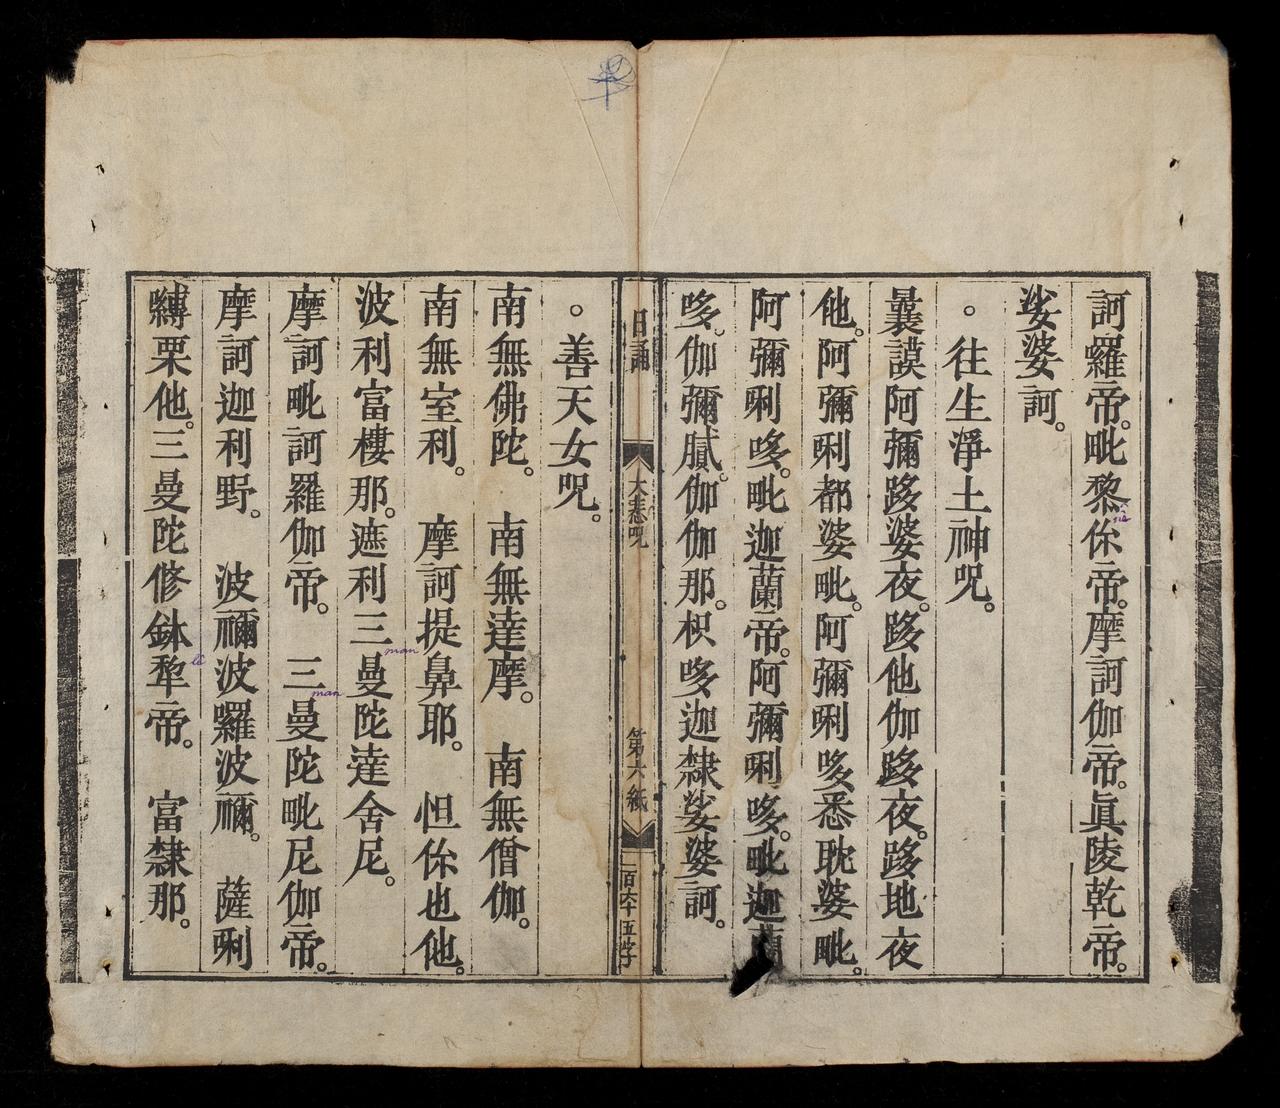 訶囉帝。毗黎你帝。摩訶伽帝。眞陵乾帝。
娑婆訶。
。往生淨土神呪。
曩謨阿彌跢婆夜。跢他伽跢夜。跢地夜
他。阿彌唎都婆毗。阿彌唎哆悉耽婆毗。
阿彌唎哆。毗迦蘭帝。阿彌唎哆。毗迦蘭
哆。伽彌膩。伽伽那。枳哆迦隸娑婆訶。
日誦
大悲呪
第六紙
一百六十五字
。善天女呪。
南無佛陀。 南無達摩。 南無僧伽。
南無室利。 摩訶提鼻耶。 怛你也他。
波利富樓那。遮利三曼陀達舍尼。
摩訶毗訶羅伽帝。 三曼陀毗尼伽帝。
摩訶迦利野。 波禰波囉波禰。 薩唎
縛栗他。三曼陀修鉢犂帝。 富隸那。
man
man
le